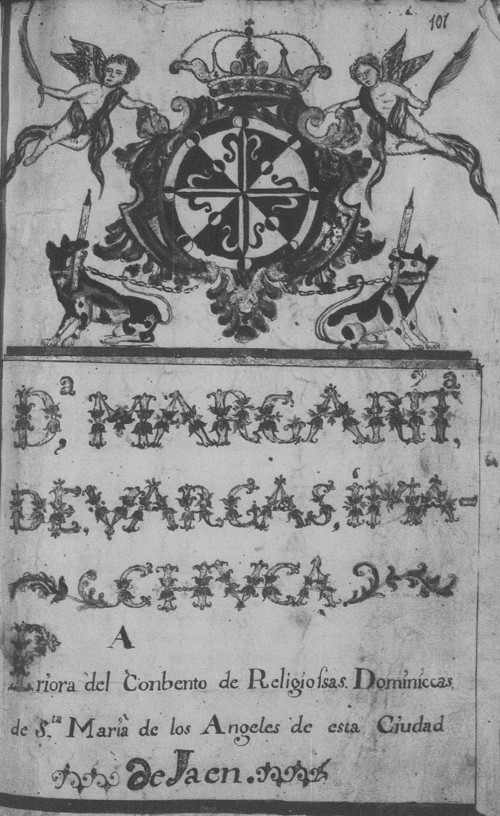 101
D.ª MARGARIT.ª
DE, VARGAS, Í MA=
CHVCA
A
Priora del Conbento de Religioſsas. Dominiccas,
de S.ta Maria de los Angeles de esta Ciudad
de Jaen.